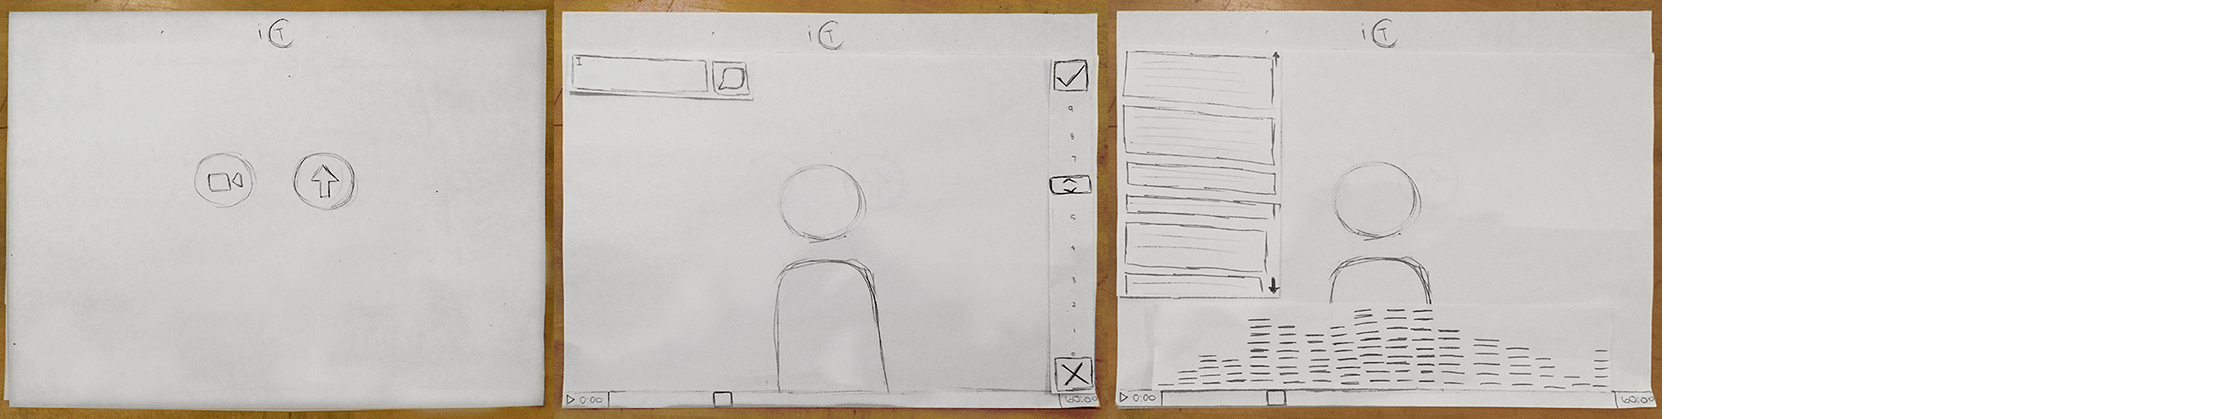 i T
i T
I
9
8
7
5
4
3
2
1
0
0:00
60:00
i T
0:00
60:00